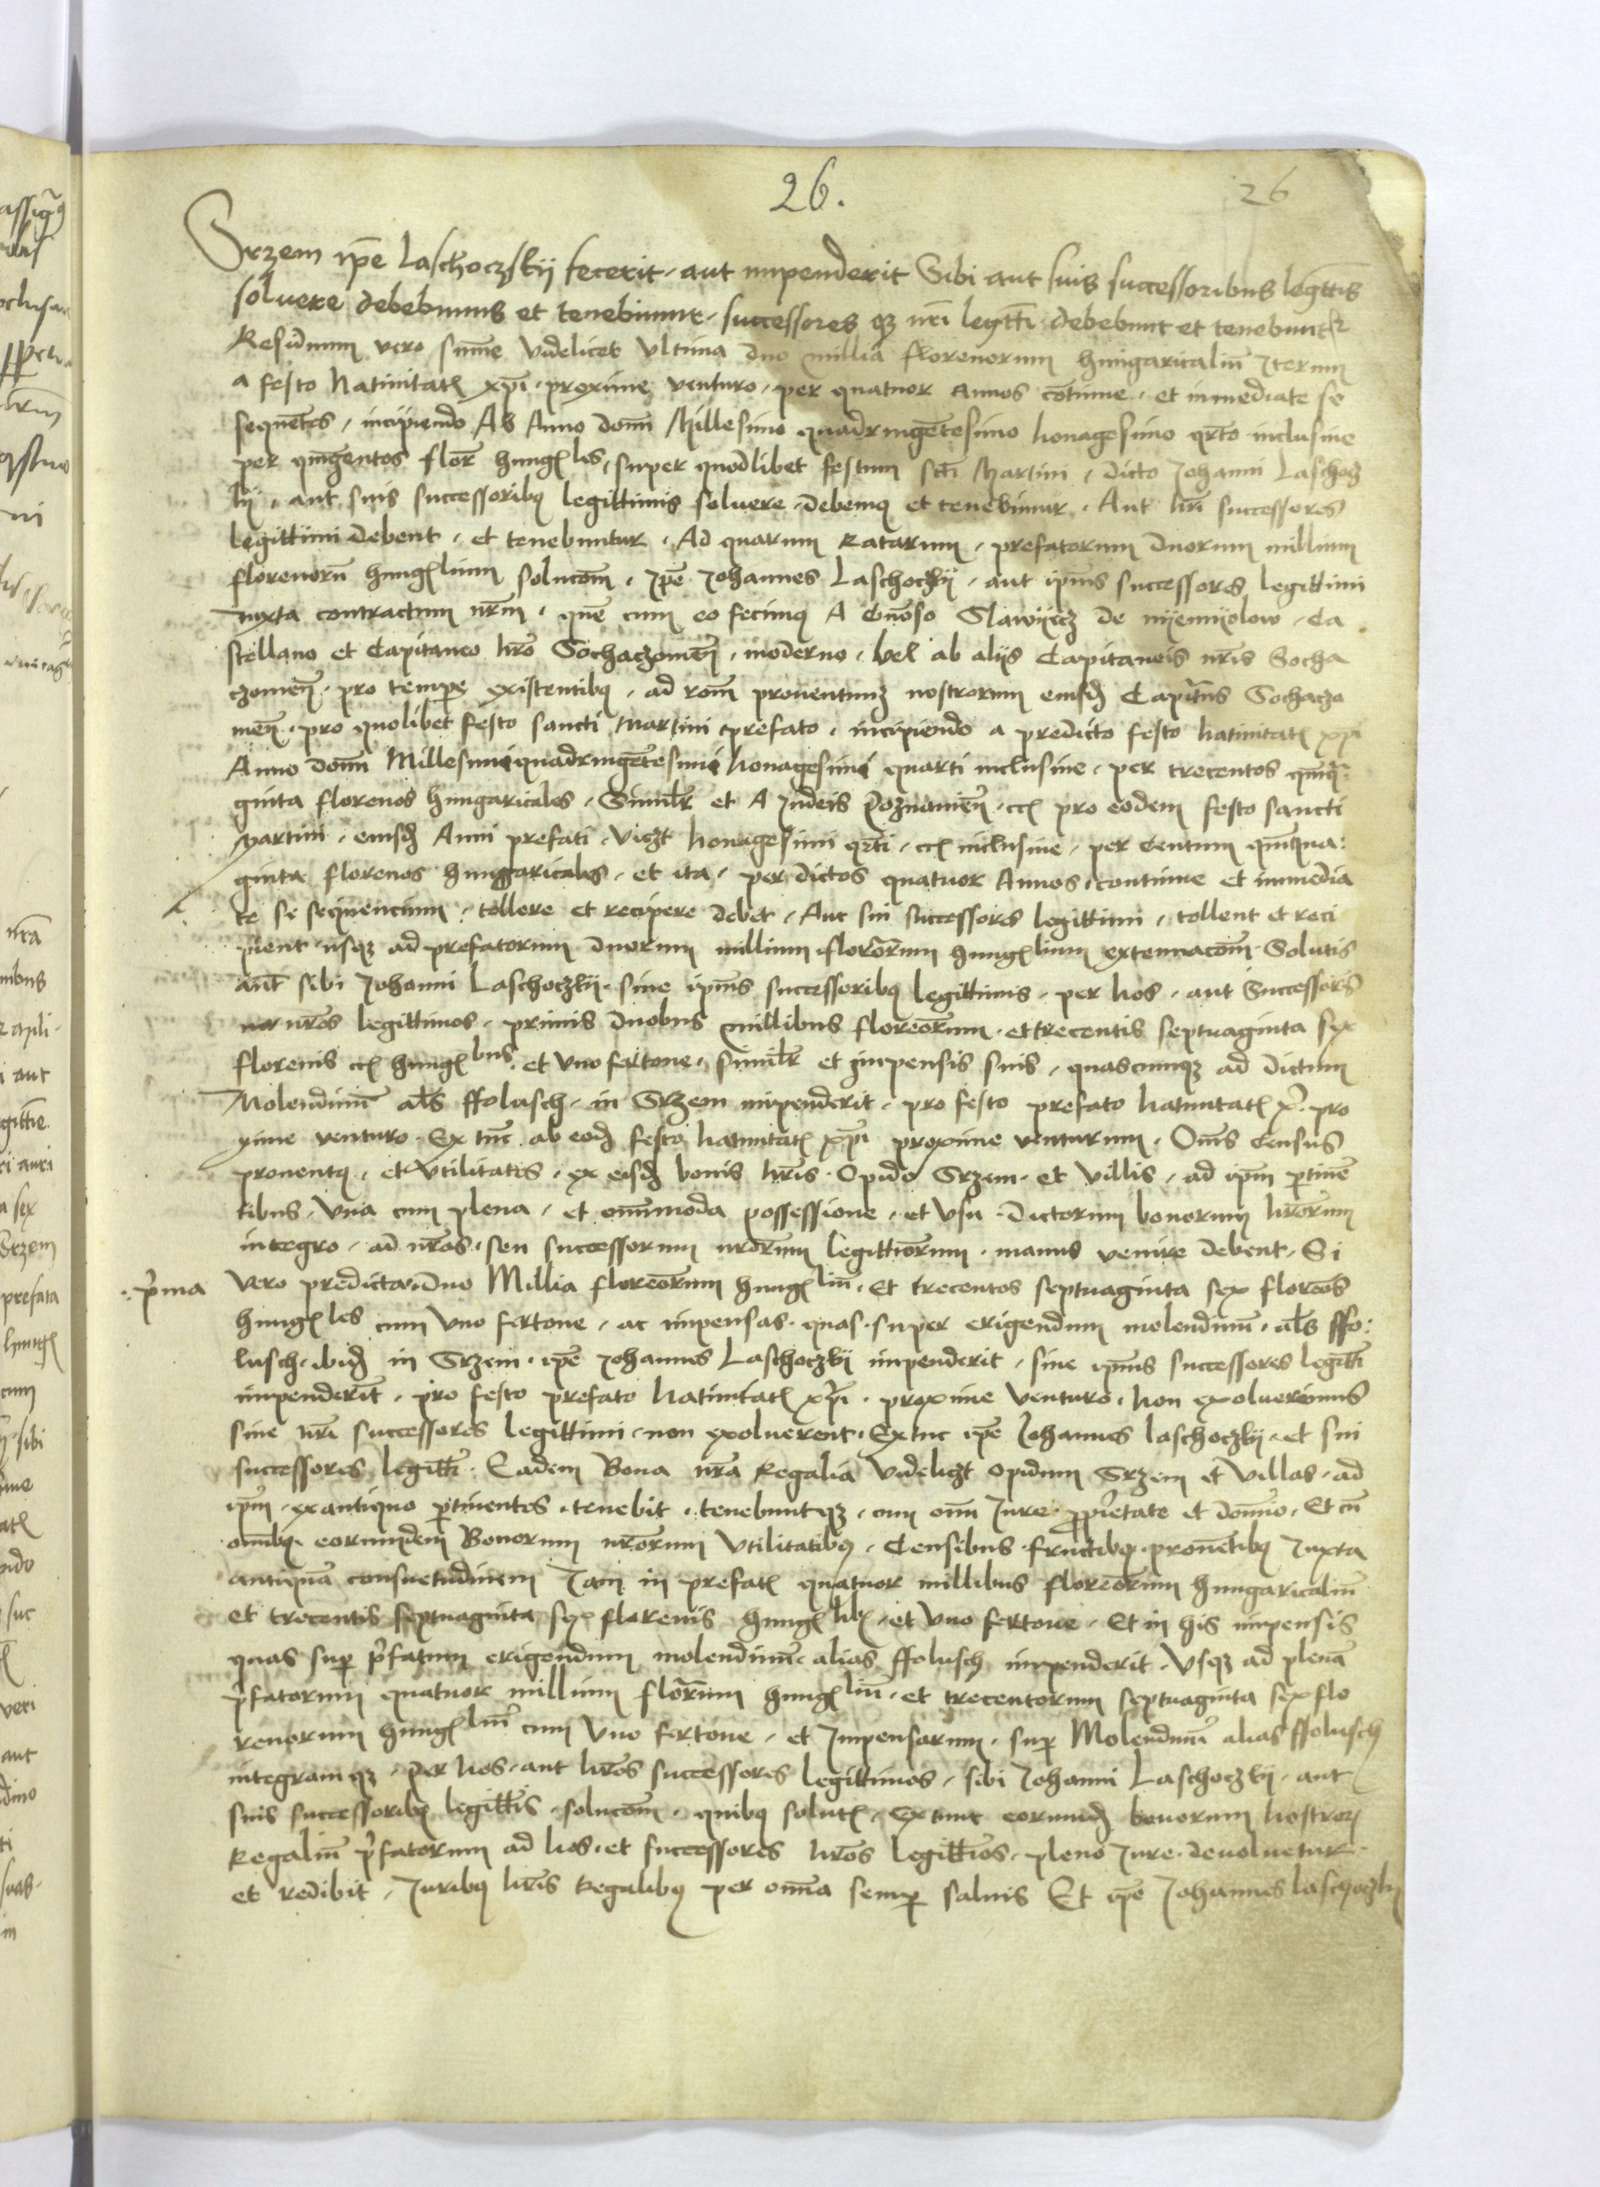 26.
26
Srzem ip̄e Laschoczkij fecerit, aut impenderit Sibi aut suis successoribus legtt̄is
soluere debebimus et tenebimur, successores qz nr̄i legytt̄i debebunt et tenebuntr
Residuum vero sum̄e videlicet vltima duo millia florenorum hungaricaliū Iterum
a festo Natiuitatꝭ xpī proxime venturo, per quatuor Annos cōtinue, et immediate se
sequētes, incipiendo Ab Anno domī Millesimo quadringētesimo Nonagesimo qr̄to inclusiue
per qn̄gentos flor̄ hungꝭles, super quodlibet festum sctī Martini, dicto Johanni Laschocz
kij, aut suis successoribꝫ legittimis soluere debemꝫ et tenebimur, Aut nr̄i successores
legittimi debent, et tenebuntur, Ad quarum Ratarum, prefatorum duorum millium
florenorū hungꝭlium solucōm, Ip̄e Johannes Laschoczkij, aut ip̄ius successores legittimi
Iuxta contractum nr̄m, quē cum eo fecimꝫ A Gn̄oso Slawijecz de nijemijolow, Ca
stellano et Capitaneo nr̄o Sochaczouien̄, moderno, vel ab alijs Capitaneis nr̄is Socha
czouien̄, pro tempe existentibꝫ, ad rōm prouentuum nostrorum eiusdꝫ Capitn̄s Sochaczo
uien̄, pro quolibet festo sancti Martini prefato, incipiendo a predicto festo Natiuitatꝭ xpī
Anno domī Millesimi quadringētesimi Nonagesimi quarti inclusiue, per trecentos qn̄qua
ginta florenos hungaricales, Similr̄ et A Iudeis Poznanien̄, ccꝭ pro eodem festo sancti
Martini, eiusdꝫ Anni prefati, viczt Nonagesimi qr̄ti, ccꝭ inclusiue, per Centum qn̄qua:
ginta florenos hungaricales, et ita, per dictos quatuor Annos, continue et immedia
te se sequencium, tollere et recipere debet, Aut sui successores legittimi, tollent et reci
pient usqꝫ ad prefatorum duorum millium flororum hungꝭlium extenuacōm Solutis
aūt sibi Johanni Laschoczkij, siue ip̄ius successoribꝫ legittimis, per Nos, aut Successores
nr̄os legittimos, primis duobus millibus floreōrum, et trecentis septuaginta sex
florenis ccꝭ hungꝭbus, et vno fertone, similr̄ et impensis suis, quascumqꝫ ad dictum
Molendinū als̄ ffolusch, in Srzem impenderit, pro festo prefato Natiuitatꝭ x̄ī pro
xime venturo, Ex tūc ab eodꝫ festo Natiuitatꝭ xpī proxime venturum, Om̄s Census
prouentꝫ, et vtilitates, ex eisdꝫ bonis nr̄is, Opido Srzem, et villis, ad ip̄m ptinē
tibus, vna cum plena, et omnimoda possessione, et vsu dictorum bonorum nr̄orum
integro, ad nr̄as, seu successorum nrōrum legittīorum, manus venire debent, Si
p̄ma
vero predicta duo Millia floreōrum hungꝭliū, Et trecentos septuaginta sex floreōs
hungꝭles cum vno fertone, ac impensas, quas super erigendum molendinū, als̄ ffo:
lusch, ibidꝫ in Srzem, ip̄e Johannes Laschoczkij impenderit, siue ip̄ius successores legitt̄i
impenderīt, pro festo prefato Natiuitatꝭ xpī, proxime venturo, Non exolueremus
siue nr̄i successores legittimi, non exoluerent, Ex tūc ip̄e Johannes Laschoczkij, et sui
successores legitt̄i, Eadem Bona nr̄a Regalia videliczt opidum Srzem et villas, ad
ip̄m, ex antiquo ptinentes, tenebit, tenebuntqꝫ, cum om̄i Iure, ppietate et dom̄io, Et cū
om̄ibꝫ eorumdem Bonorum nr̄orum vtilitatibꝫ, Censibus fructibꝫ, prouētibꝫ Iuxta
antiquā consuetudinem Iam in prefatꝭ quatuor millibus floreōrum hungaricaliū
et trecentis septuaginta sex florenis hungꝭlibꝫ, et vno fertone, Et in his impensis
quas sup p̄fatum erigendum molendinū, alias ffolusch impenderit, vsqꝫ ad plenā
p̄fatorum quatuor millium flor̄um hungꝭliū, et trecentorum septuaginta sex flo
renorum hungꝭliū cum vno fertone, et Impensarum, sup Molendinū alias ffolusch
integramqꝫ, per Nos, aut Nr̄os successores legittimos, sibi Johanni Laschoczkij, aut
suis successoribꝫ legitt̄is, solucōm, quibꝫ solutꝭ, Ex tunc eorumdꝫ bonorum nostroꝝ
Regaliū p̄fatorum ad Nos, et successores Nr̄os legitt̄ios, pleno Iure deuoluetur
et redibit, Iuribꝫ Nr̄is Regalibꝫ per om̄ia semp saluis Et ip̄e Johannes Laschoczkij